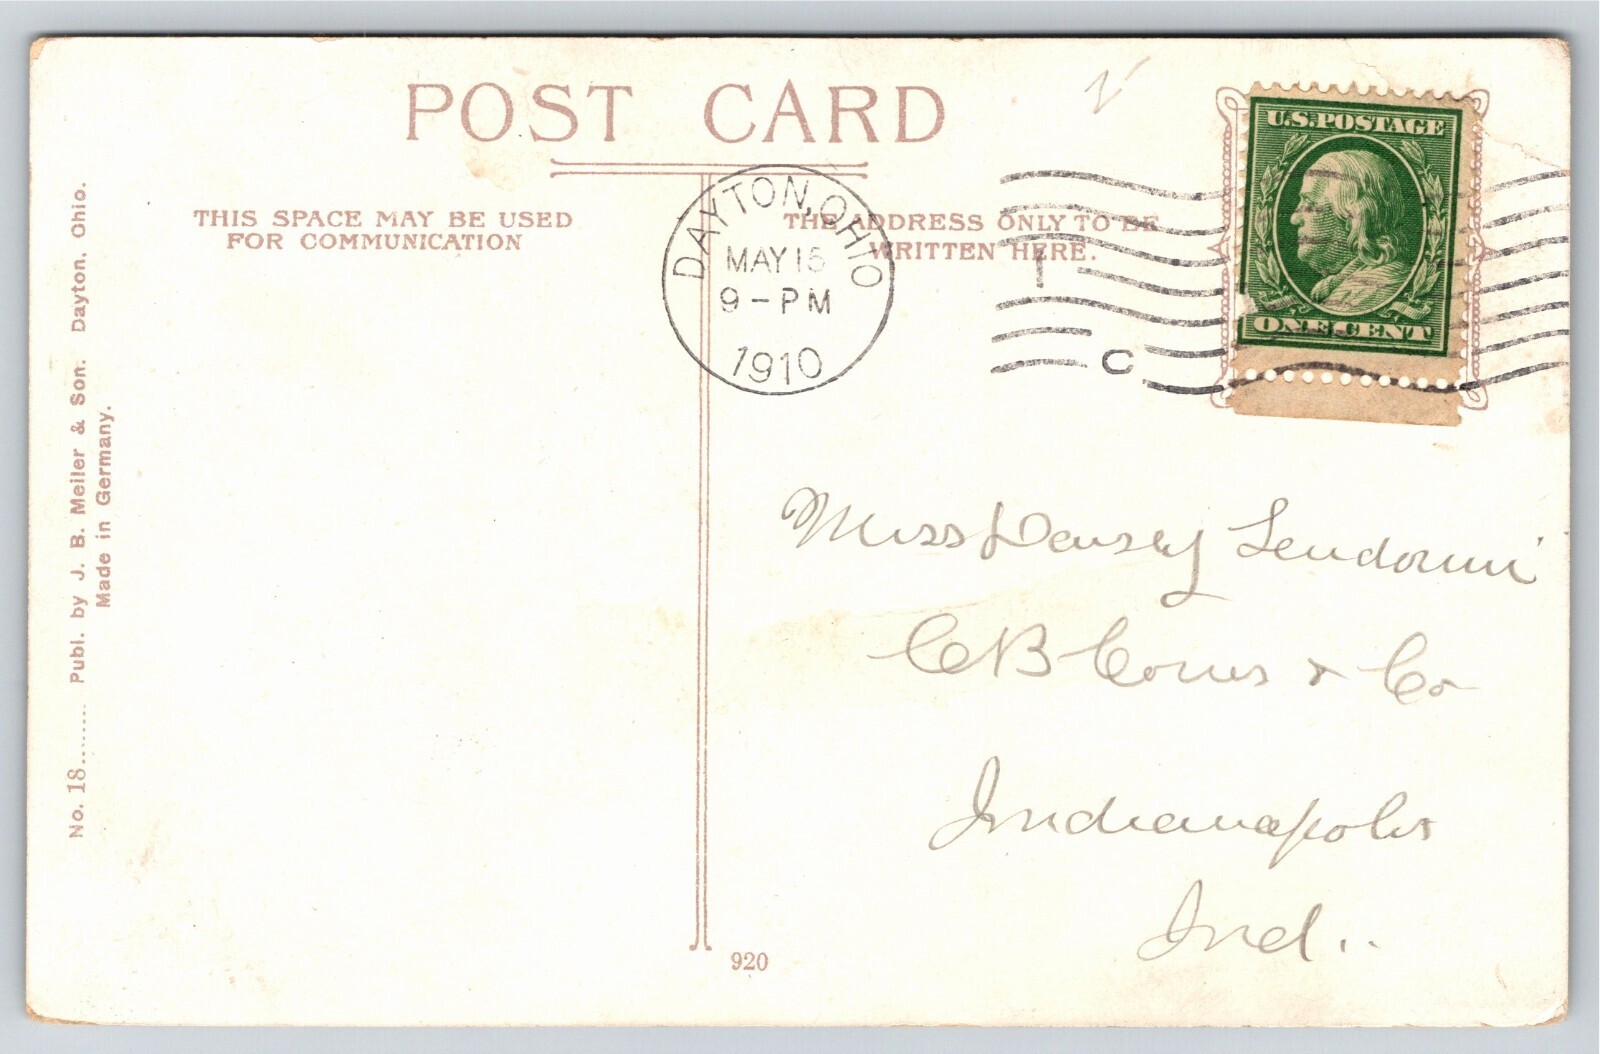 POST CARD
THIS SPACE MAY BE USED
FOR COMMUNICATION
THE ADDRESS ONLY TO BE
WRITTEN HERE.
DAYTON, OHIO
MAY 15
9-PM
1910
C
U.S. POSTAGE
ONE CENT
No. 18....... Publ. by J. B. Meiler & Son. Dayton, Ohio.
Made in Germany.
Miss
C B & Co
Indianapolis
Ind..
920